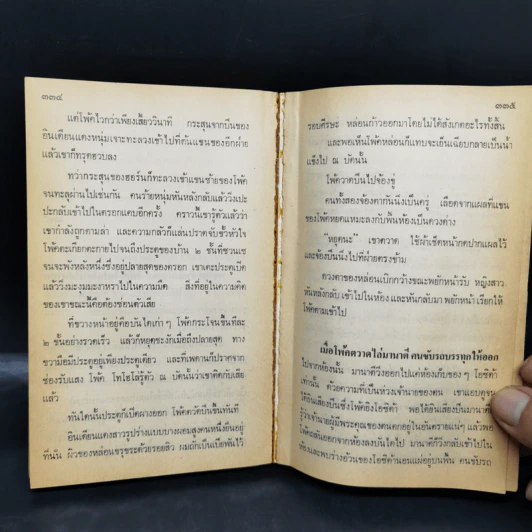 ๓๓๔
แต่โพ้คไวกว่าเพียงเสี้ยววินาที กระสุนจากปืนของ
อินเดียนแดงหนุ่มเจาะทะลวงเข้าไปที่ต้นแขนของอีกฝ่าย
แล้วเขาก็ทรุดฮวบลง
ทว่ากระสุนของฮอร์นก็ทะลวงเข้าแขนซ้ายของโพ้ค
จนทะลุผ่านไปเช่นกัน คนร้ายหนุ่มหันหลังกลับแล้ววิ่งเปะ
ปะกลับเข้าไปในตรอกแคบอีกครั้ง คราวนี้เขารู้ตัวแล้วว่า
เขากำลังถูกตามล่า และความกลัวก็แล่นปราดจับขั้วหัวใจ
โพ้คตะเกียกตะกายไปจนถึงประตูของบ้าน ๒ ชั้นที่ชวนเซ
จนจะพังหลังหนึ่งซึ่งอยู่ปลายสุดของตรอก เขาเตะประตูเปิด
แล้ววิ่งมะงุมมะงาหราไปในความมืด สิ่งที่อยู่ในความคิด
ของเขาขณะนี้คือต้องซ่อนตัวเสีย
ที่ขวางหน้าอยู่คือบันไดเก่า ๆ โพ้คกระโจนขึ้นทีละ
๒ ขั้นอย่างรวดเร็ว แล้วก็หยุดชะงักเมื่อถึงปลายสุด ทาง
ขวามือมีประตูอยู่เพียงประตูเดียว และที่เพดานก็ปราศจาก
ช่องรับแสง โพ้ค โทโฮโสรู้ตัว ณ บัดนั้นว่าเขาติดกับเสีย
แล้ว
ทันใดนั้นประตูก็เปิดผางออก โพ้คตวัดปืนขึ้นทันที
อินเดียนแดงสาวรูปร่างแบบบางผอมสูงคนหนึ่งยืนอยู่
ที่นั่น ผิวของหล่อนขรุขระด้วยรอยสิว ผมถักเป็นเปียพันไว้
๓๓๕
รอบศีรษะ หล่อนก้าวออกมาโดยไม่ได้สังเกตอะไรทั้งสิ้น
และพอเห็นโพ้คหล่อนก็แทบจะเย็นเฉียบกลายเป็นน้ำ
แข็งไป ณ บัดนั้น
โพ้ควาดปืนไปจ้องขู่
คนทั้งสองจ้องตากันนิ่งเป็นครู่ เลือดจากแผลที่แขน
ของโพ้คหยดแหมะลงกับพื้นห้องเป็นดวงด่าง
"หยุดนะ" เขาตวาด ใช้ผ้าเช็ดหน้ากดปากแผลไว้
และจ้องปืนนิ่งไปที่ฝ่ายตรงข้าม
ดวงตาของหล่อนเบิกกว้างขณะพยักหน้ารับ หญิงสาว
หันหลังกลับ เข้าไปในห้อง และหันกลับมา พยักหน้า เรียกให้
โพ้คตามเข้าไป
เมื่อโพ้คตวาดไล่มานาดี คนขับรถบรรทุกให้ออก
ไปจากห้องนั้น มานาดีวิ่งออกไปแค่ห้องเก็บของ ๆ โอชิต้า
เท่านั้น ด้วยความที่เป็นห่วงเจ้านายของตน เขาแอบดู
ได้ยินเสียงปืนซึ่งโพ้คยิงโอชิต้า พอได้ยินเสียงปืนมานาดี
รู้ว่าเจ้านายผู้มีพระคุณของตนตกอยู่ในอันตรายแน่ๆ แล้วพอ
โพ้คถลันออกจากห้องลงบันไดไป มานาดีก็วิ่งกลับเข้าไปใน
ห้องและพบร่างอ้วนของโอชิต้านอนแผ่อยู่บนพื้น คนขับรถ